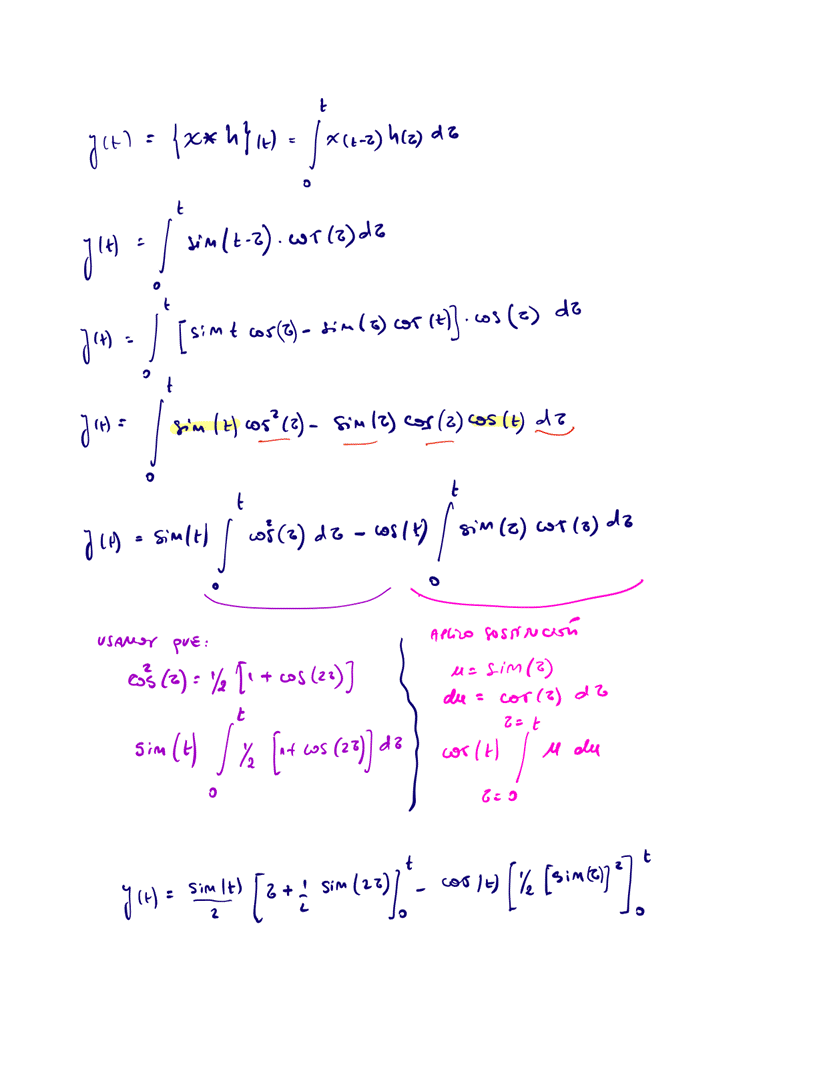 y(t) = {x * h}(t) = ∫₀ᵗ x(t-τ) h(τ) dτ
y(t) = ∫₀ᵗ sin(t-τ) · cos(τ) dτ
y(t) = ∫₀ᵗ [sin t cos(τ) - sin(τ) cos(t)] · cos(τ) dτ
y(t) = ∫₀ᵗ sin(t) cos²(τ) - sin(τ) cos(τ) cos(t) dτ
y(t) = sin(t) ∫₀ᵗ cos²(τ) dτ - cos(t) ∫₀ᵗ sin(τ) cos(τ) dτ
USAMOS QUE:
cos²(τ) = 1/2 [1 + cos(2τ)]
sin(t) ∫₀ᵗ 1/2 [1+ cos(2τ)] dτ
APLICO SUSTITUCIÓN
u = sin(τ)
du = cos(τ) dτ
cos(t) ∫_{τ=0}^{τ=t} u du
y(t) = sin(t)/2 [τ + 1/2 sin(2τ)]₀ᵗ - cos(t) [1/2 [sin(τ)]²]₀ᵗ